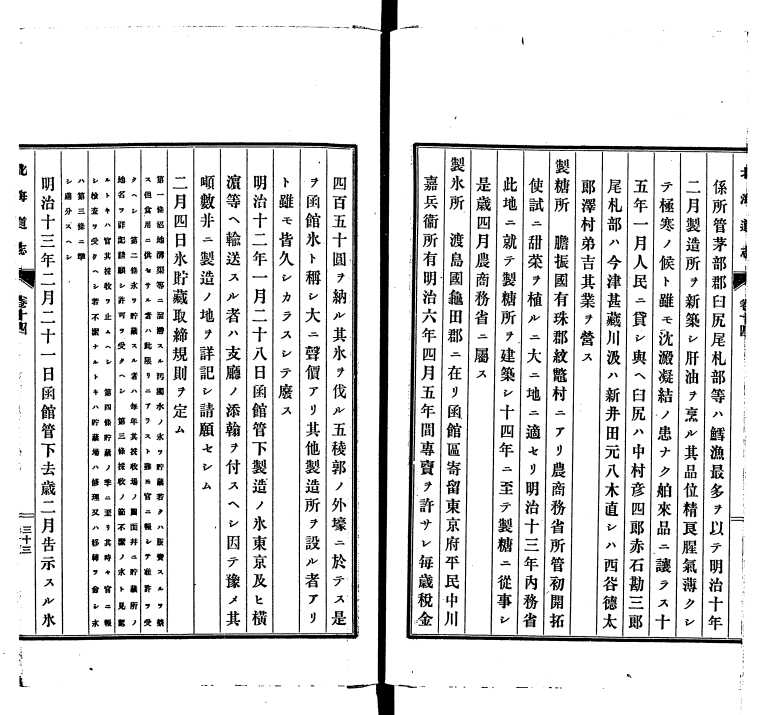 北海道志 卷十四
係所管茅部郡臼尻尾札部等ハ鱈漁最多ヲ以テ明治十年
二月製造所ヲ新築シ肝油ヲ烹ル其品位精良腥氣薄クシ
テ極寒ノ候ト雖モ沈澱凝結ノ患ナク舶來品ニ讓ラス十
五年一月人民ニ貸シ與ヘ臼尻ハ中村彥四郎赤石勘三郎
尾札部ハ今津甚藏川汲ハ新井田元八木直シハ西谷德太
郎澤村弟吉其業ヲ營ス
製糖所 膽振國有珠郡紋鼈村ニアリ農商務省所管初開拓
使試ニ甜菜ヲ植ルニ大ニ地ニ適セリ明治十三年內務省
此地ニ就テ製糖所ヲ建築シ十四年ニ至テ製糖ニ從事シ
是歲四月農商務省ニ屬ス
製氷所 渡島國龜田郡ニ在リ函館區寄留東京府平民中川
嘉兵衞所有明治六年四月五年間專賣ヲ許サレ每歲稅金
四百五十圓ヲ納ル其氷ヲ伐ル五稜郭ノ外壕ニ於テス是
ヲ函館氷ト稱シ大ニ聲價アリ其他製造所ヲ設ル者アリ
ト雖モ皆久シカラスシテ廢ス
明治十二年一月二十八日函館管下製造ノ氷東京及ヒ橫
濱等ヘ輸送スル者ハ支廳ノ添翰ヲ付スヘシ因テ豫メ其
噸數幷ニ製造ノ地ヲ詳記シ請願セシム
二月四日氷貯藏取締規則ヲ定ム
第一條沼地溝渠等ニ溜滯スル汚濁水ノ氷ヲ貯藏若クハ販賣スルヲ禁
ス但食用ニ供セサル者ハ此限リニアラスト雖モ官ニ報シテ准許ヲ受
クヘシ 第二條氷ヲ貯藏スル者ハ每年其採收場ノ圖面幷ニ貯藏所ノ
地名ヲ詳記請願シ許可ヲ受クヘシ 第三條採收ノ節不潔ノ氷ト見認
ルトキハ官其採收ヲ止ムヘシ 第四條貯藏ノ季ニ至リ其時々官ニ報
シ檢査ヲ受クヘシ若不潔ナルトキハ貯藏場ハ修理又ハ移轉ヲ命シ氷
ハ第三條ニ準
シ處分スヘシ
明治十三年二月二十一日函館管下去歲二月告示スル氷
北海道志 卷十四 三十三